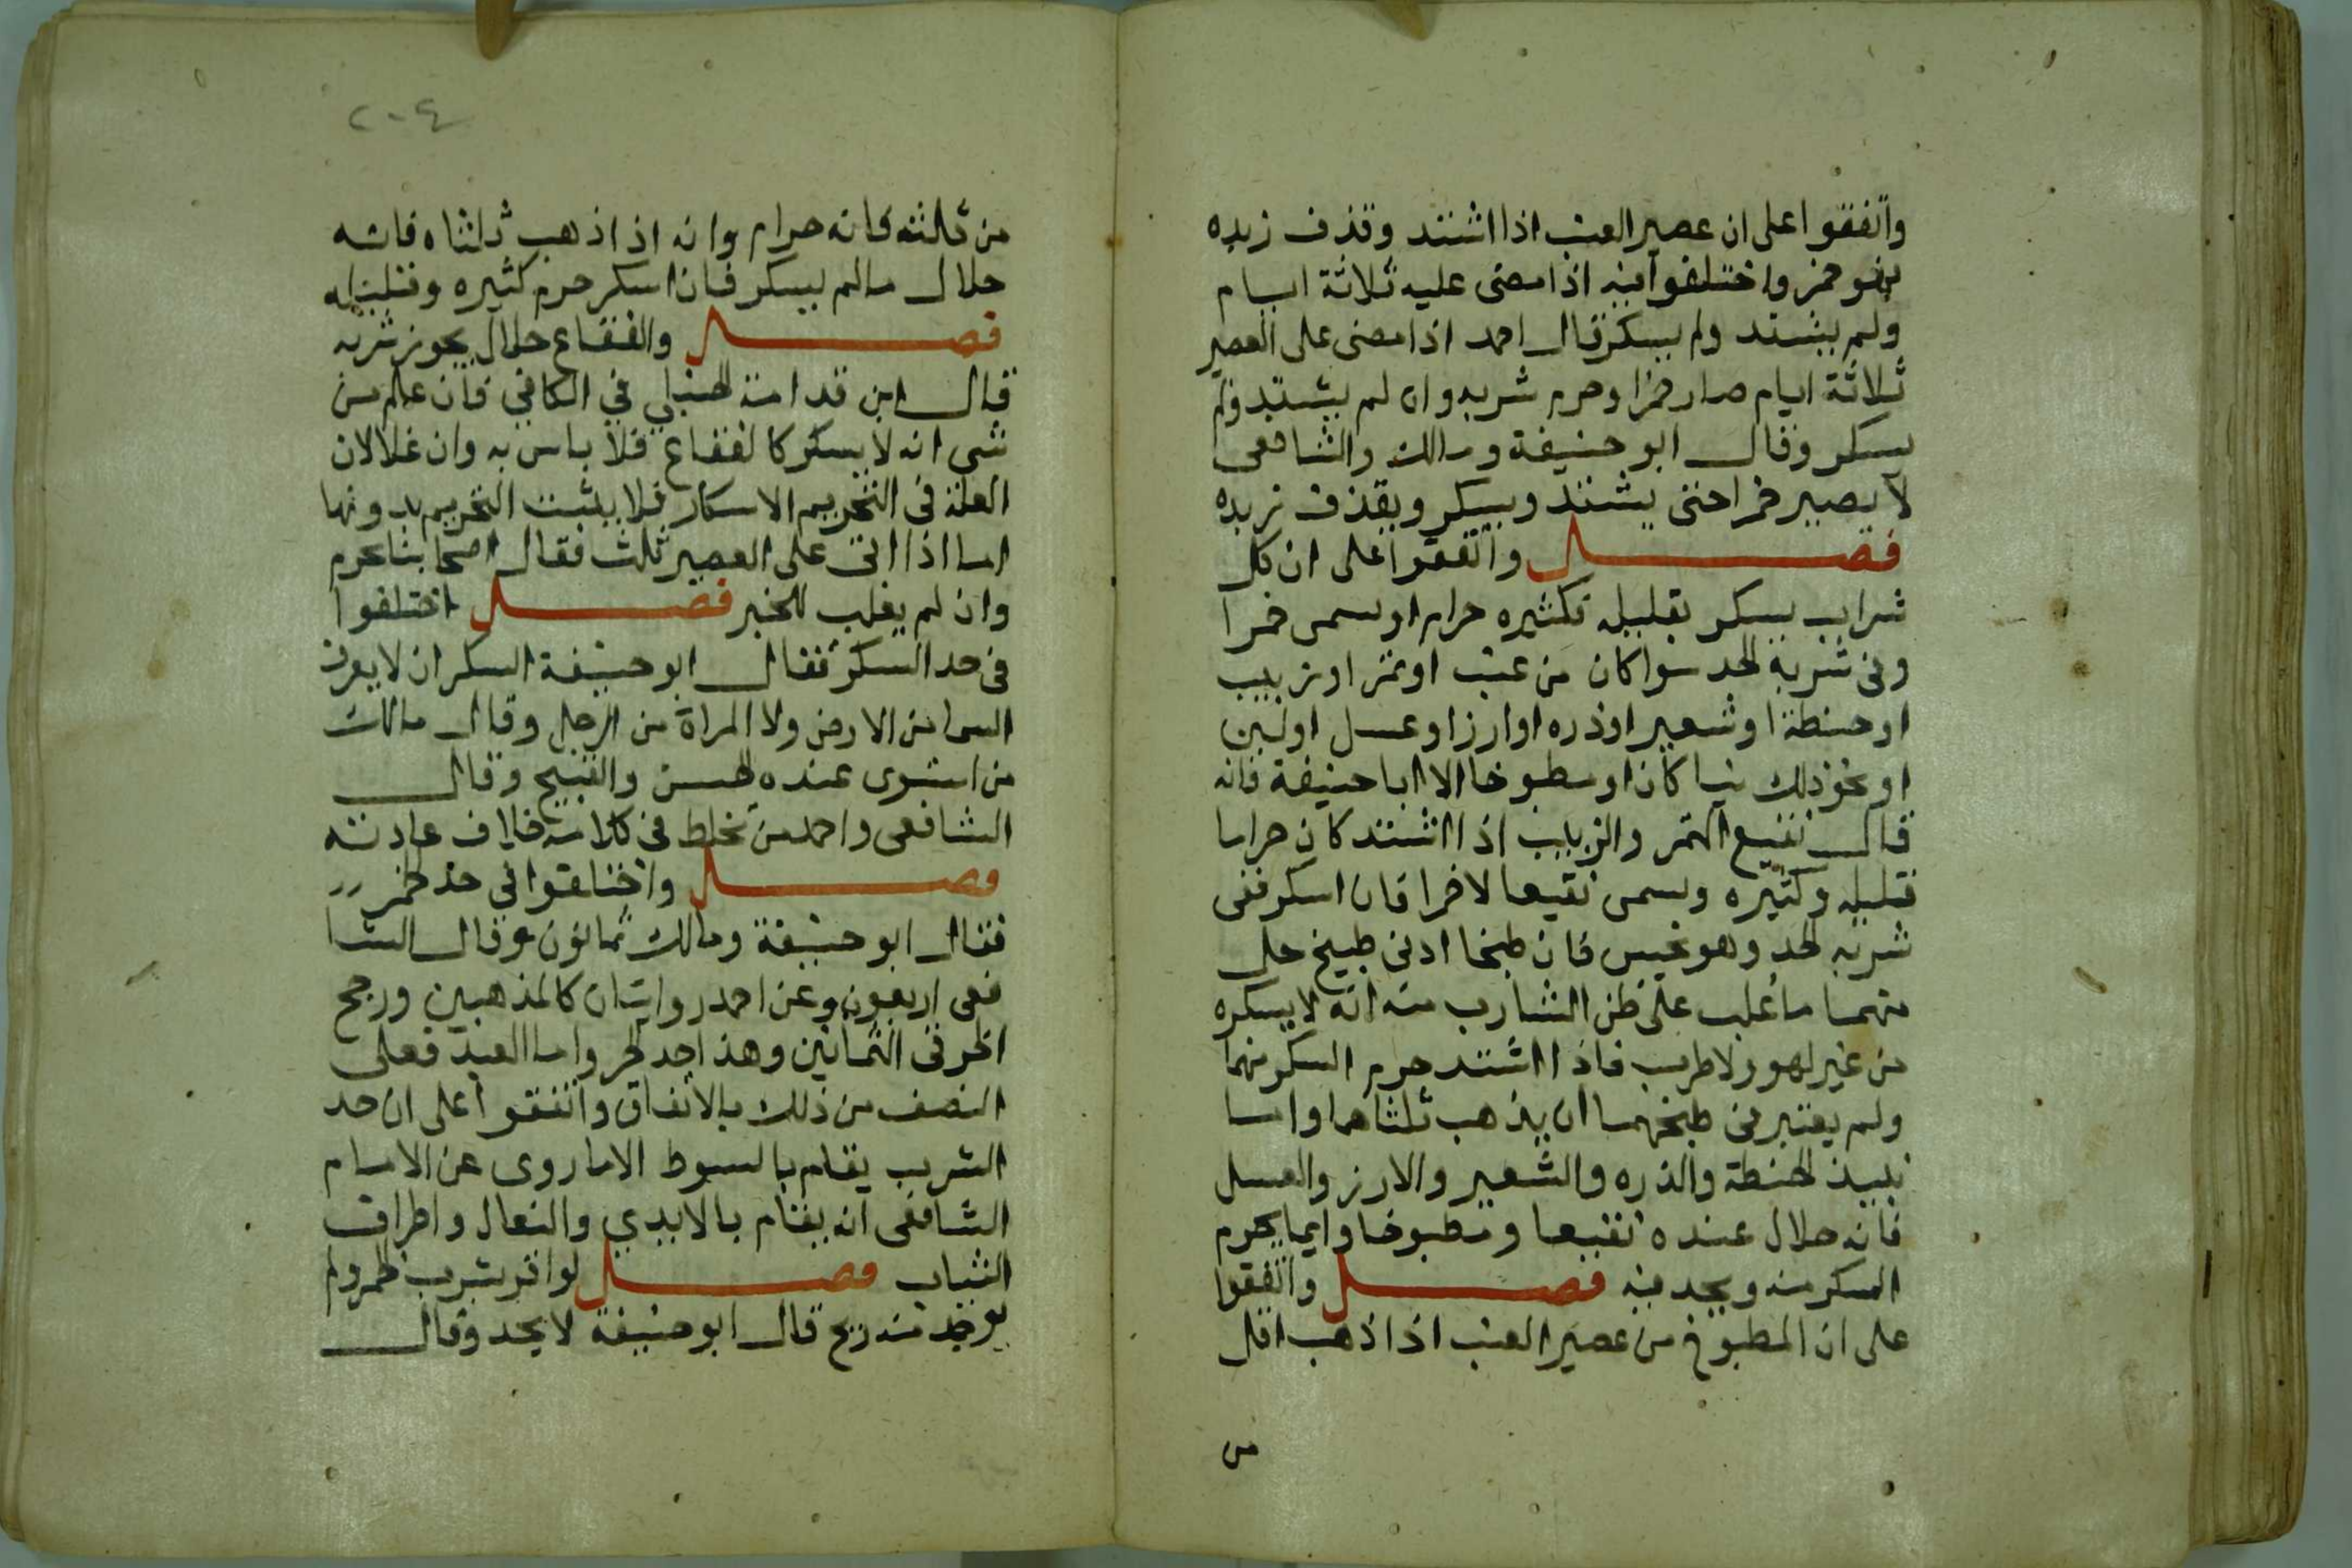 واتفقوا على ان عصير العنب اذا اشتد وقذف زبده
فهو خمر واختلفوا فيه اذا مضى عليه ثلاثة ايام
ولم يشتد ولم يسكر فقال احمد اذا مضى على العصير
ثلاثة ايام صار خمرا وحرم شربه وان لم يشتد ولم
يسكر وقال ابو حنيفة ومالك والشافعى
لا يصير خمرا حتى يشتد ويسكر ويقذف زبده
فصل واتفقوا على ان كل
شراب يسكر بقليله فكثيره حرام اويسمى خمرا
وفى شربه الحد سوا كان من عنب او تمر او زبيب
او حنطة او شعير او ذره او ارز او عسل او لبن
او نحو ذلك نيا كان او مطبوخا الا ابا حنيفة فانه
قال نقيع التمر والزبيب اذا اشتد كان حراما
قليله وكثيره ويسمى نقيعا لا خمرا فان اسكر ففى
شربه الحد وهو نجس فان طبخا ادنى طبيخ حل
منهما ما غلب على ظن الشارب منه انه لا يسكره
من غير لهو ولا طرب فاذا اشتد حرم السكر منهما
ولم يعتبر فى طبخهما ان يذهب ثلثاهما واما
نبيذ الحنطة والذره والشعير والارز والعسل
فانه حلال عنده نقيعا ومطبوخا وايما يحرم
المسكر منه ويحد فيه فصل واتفقوا
على ان المطبوخ من عصير العنب اذا ذهب اقل
من
٢٠٤
من ثلثه فانه حرام وانه اذا ذهب ثلثاه فانه
حلال مالم يسكر فان اسكر حرم كثيره وقليله
فصل والفقاع حلال يجوز شربه
قال ابن قدامة الحنبلي في الكافي فان علم من
شي انه لا يسكر كالفقاع فلا باس به وان غلا لان
العلة فى التحريم الاسكار فلا يثبت التحريم بدونها
اما اذا اتى على العصير ثلث فقال اصحابنا يحرم
وان لم يغلب للخبر فصل اختلفوا
فى حد السكر فقال ابو حنيفة السكر ان لا يعرف
السما من الارض ولا المراة من الرجل وقال مالك
من استوى عنده الحسن والقبيح وقال
الشافعى واحمد من تخلط فى كلامه خلاف عادته
فصل واختلفوا في حد الخمر
فقال ابو حنيفة ومالك ثمانون وقال الشا
فعى اربعون وعن احمد روايتان كالمذهبين ورجح
الخرقى الثمانين وهذا حد الحر واما العبد فعلى
النصف من ذلك بالاتفاق واتفقوا على ان حد
الشرب يقام بالسوط الا ما روى عن الامام
الشافعى انه يقام بالايدي والنعال واطراف
الثياب فصل لو اقر بشرب الخمر ولم
يوجد منه ريح قال ابو حنيفة لا يحد وقال